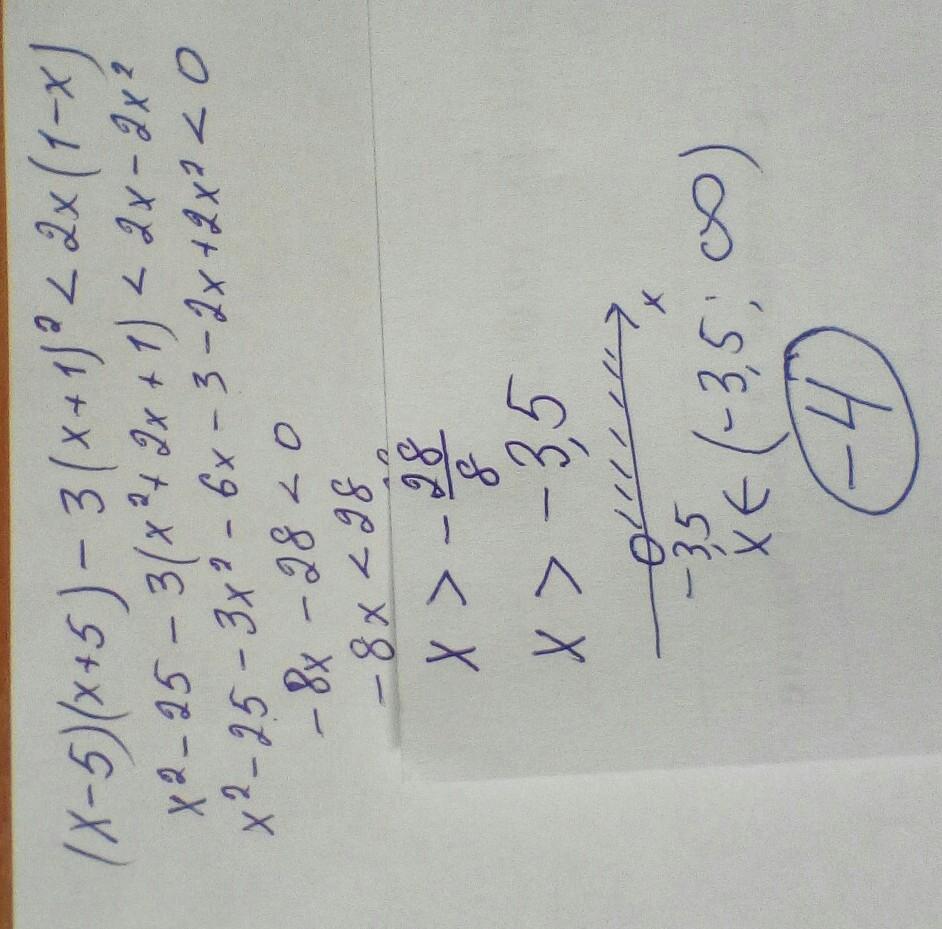 (x-5)(x+5)-3(x+1)²<2x(1-x)
x²-25-3(x²+2x+1)<2x-2x²
x²-25-3x²-6x-3-2x+2x²<0
-8x-28<0
-8x<28
x>-28/8
x>-3,5
-3,5 x
x∈(-3,5; ∞)
-4